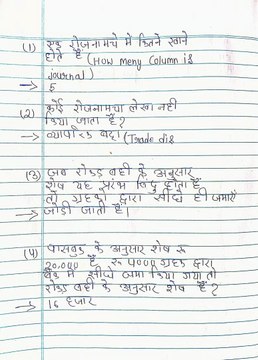 (1) एक रोजनामचे में कितने खाने
होते हैं (How meny Column is
journal)
→ 5
(2) कोई रोजनामचा लेखा नहीं
किया जाता है?
→ व्यापारिक बट्टा (Trade dis
(3) जब रोकड बही के अनुसार
शेष यह प्रारंभ बिंदु होता है
तो ग्राहको द्वारा सीधे ही जमाएँ
→ जोडी जाती है।
(4) पासबुक के अनुसार शेष रू
20,000 है रू 4000 ग्राहक द्वारा
बैंक में सीधे जमा किया गया तो
रोकड बही के अनुसार शेष है?
→ 16 हजार